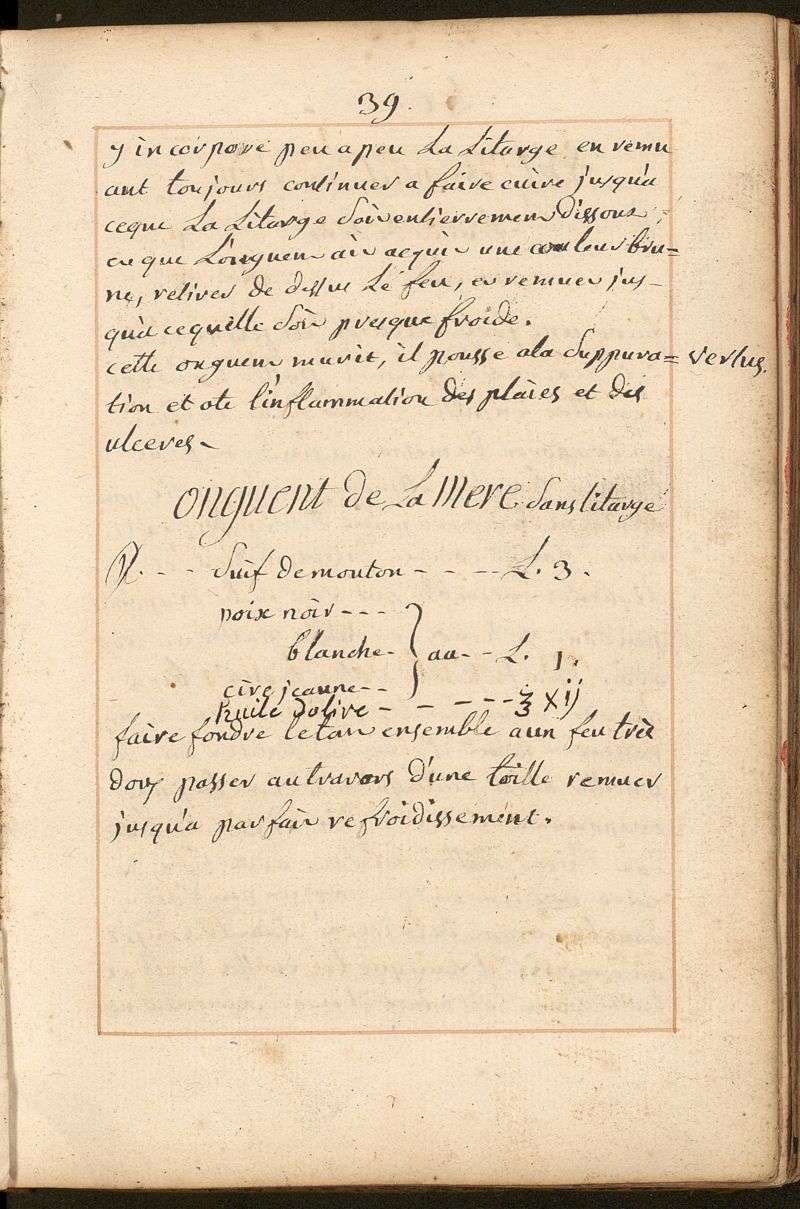 39.
y incorpore peu a peu La Litarge en remu
ant toujours continuer a faire cuire jusqu'a
ceque La Litarge soit entierremen dissout
et que L'onguen ait acquit une couleur bru=
ne, retirer de dessus Le feu, et remuer jus-
qu'a cequ'elle soit presque froide.
cette onguem murit, il pousse ala suppura= vertus.
tion et ote l'inflammation des plaies et des
ulceres~
onguent de La Mere sans litarge
℞. - - Suif de mouton - - - - L. 3.
poix noir - - -
blanche - } aa - - L. 1.
cire jeaune - -
huile d'olive - - - - - ℥ xij
faire fondre le tout ensemble a un feu très
doux passer au travers d'une toille remuer
jusqu'a parfait refroidissement.